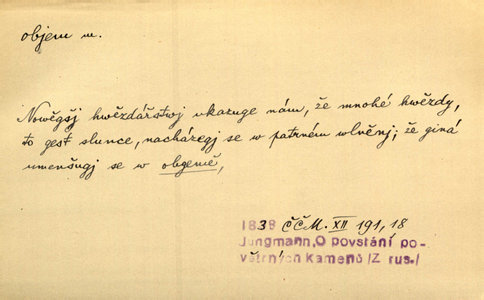 objem m.
Nowěgšj hwězdářstwj ukazuge nám, že mnohé hwězdy,
to gest slunce, nacházegj se w patrném wlněnj; že giná
umenšugj se w obgemě,
1838 ČČM. XII 191,18
Jungmann,O povstání po-
větrných kamenů /Z rus./